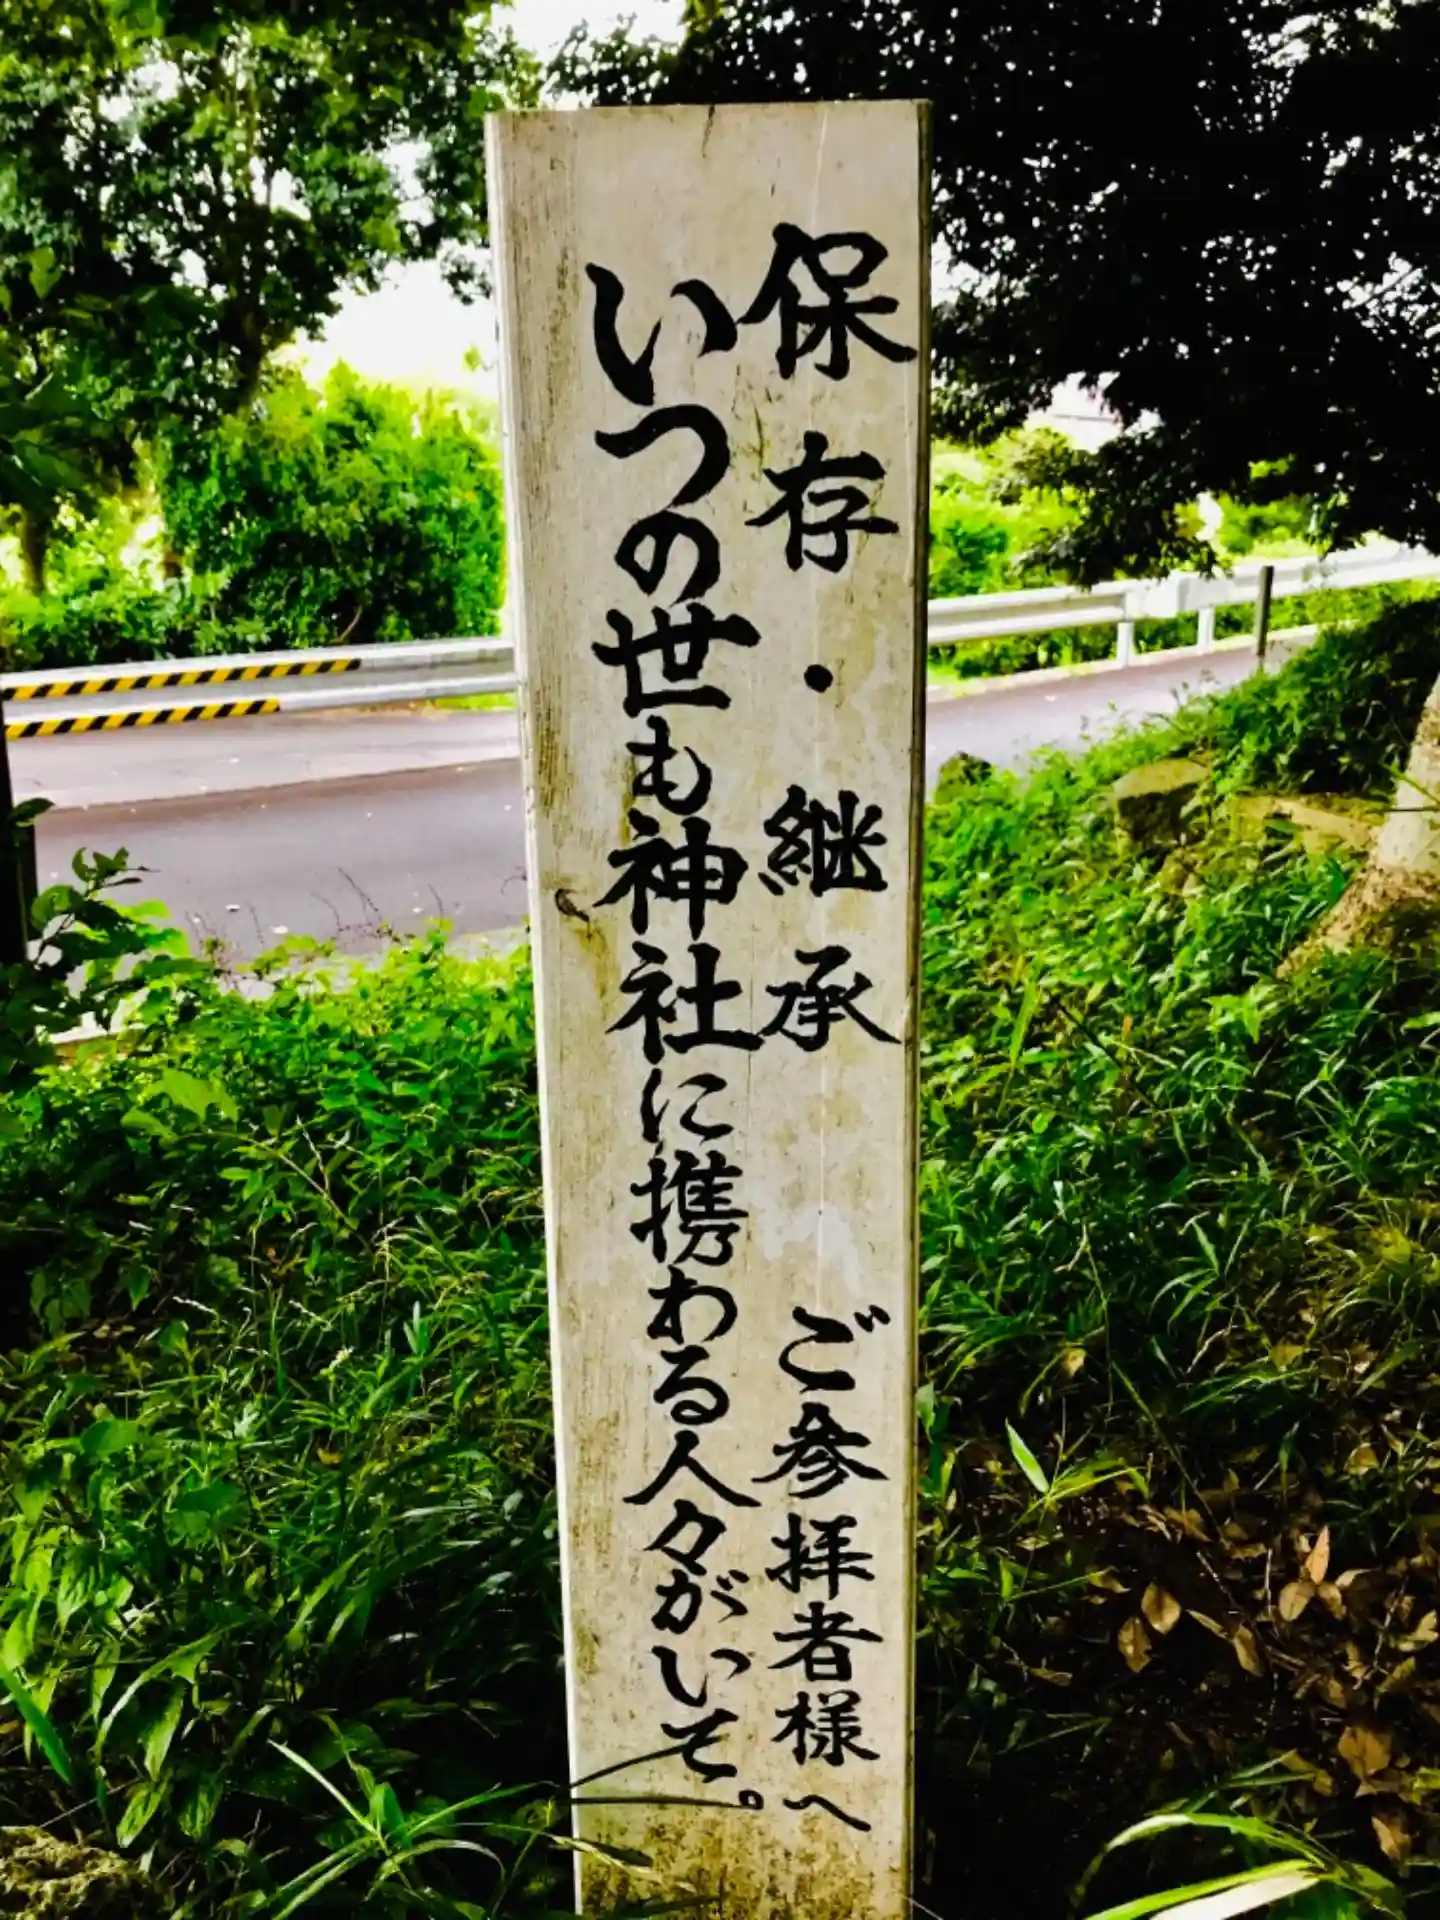 保存・継承 ご参拝者様へ
いつの世も神社に携わる人々がいて。